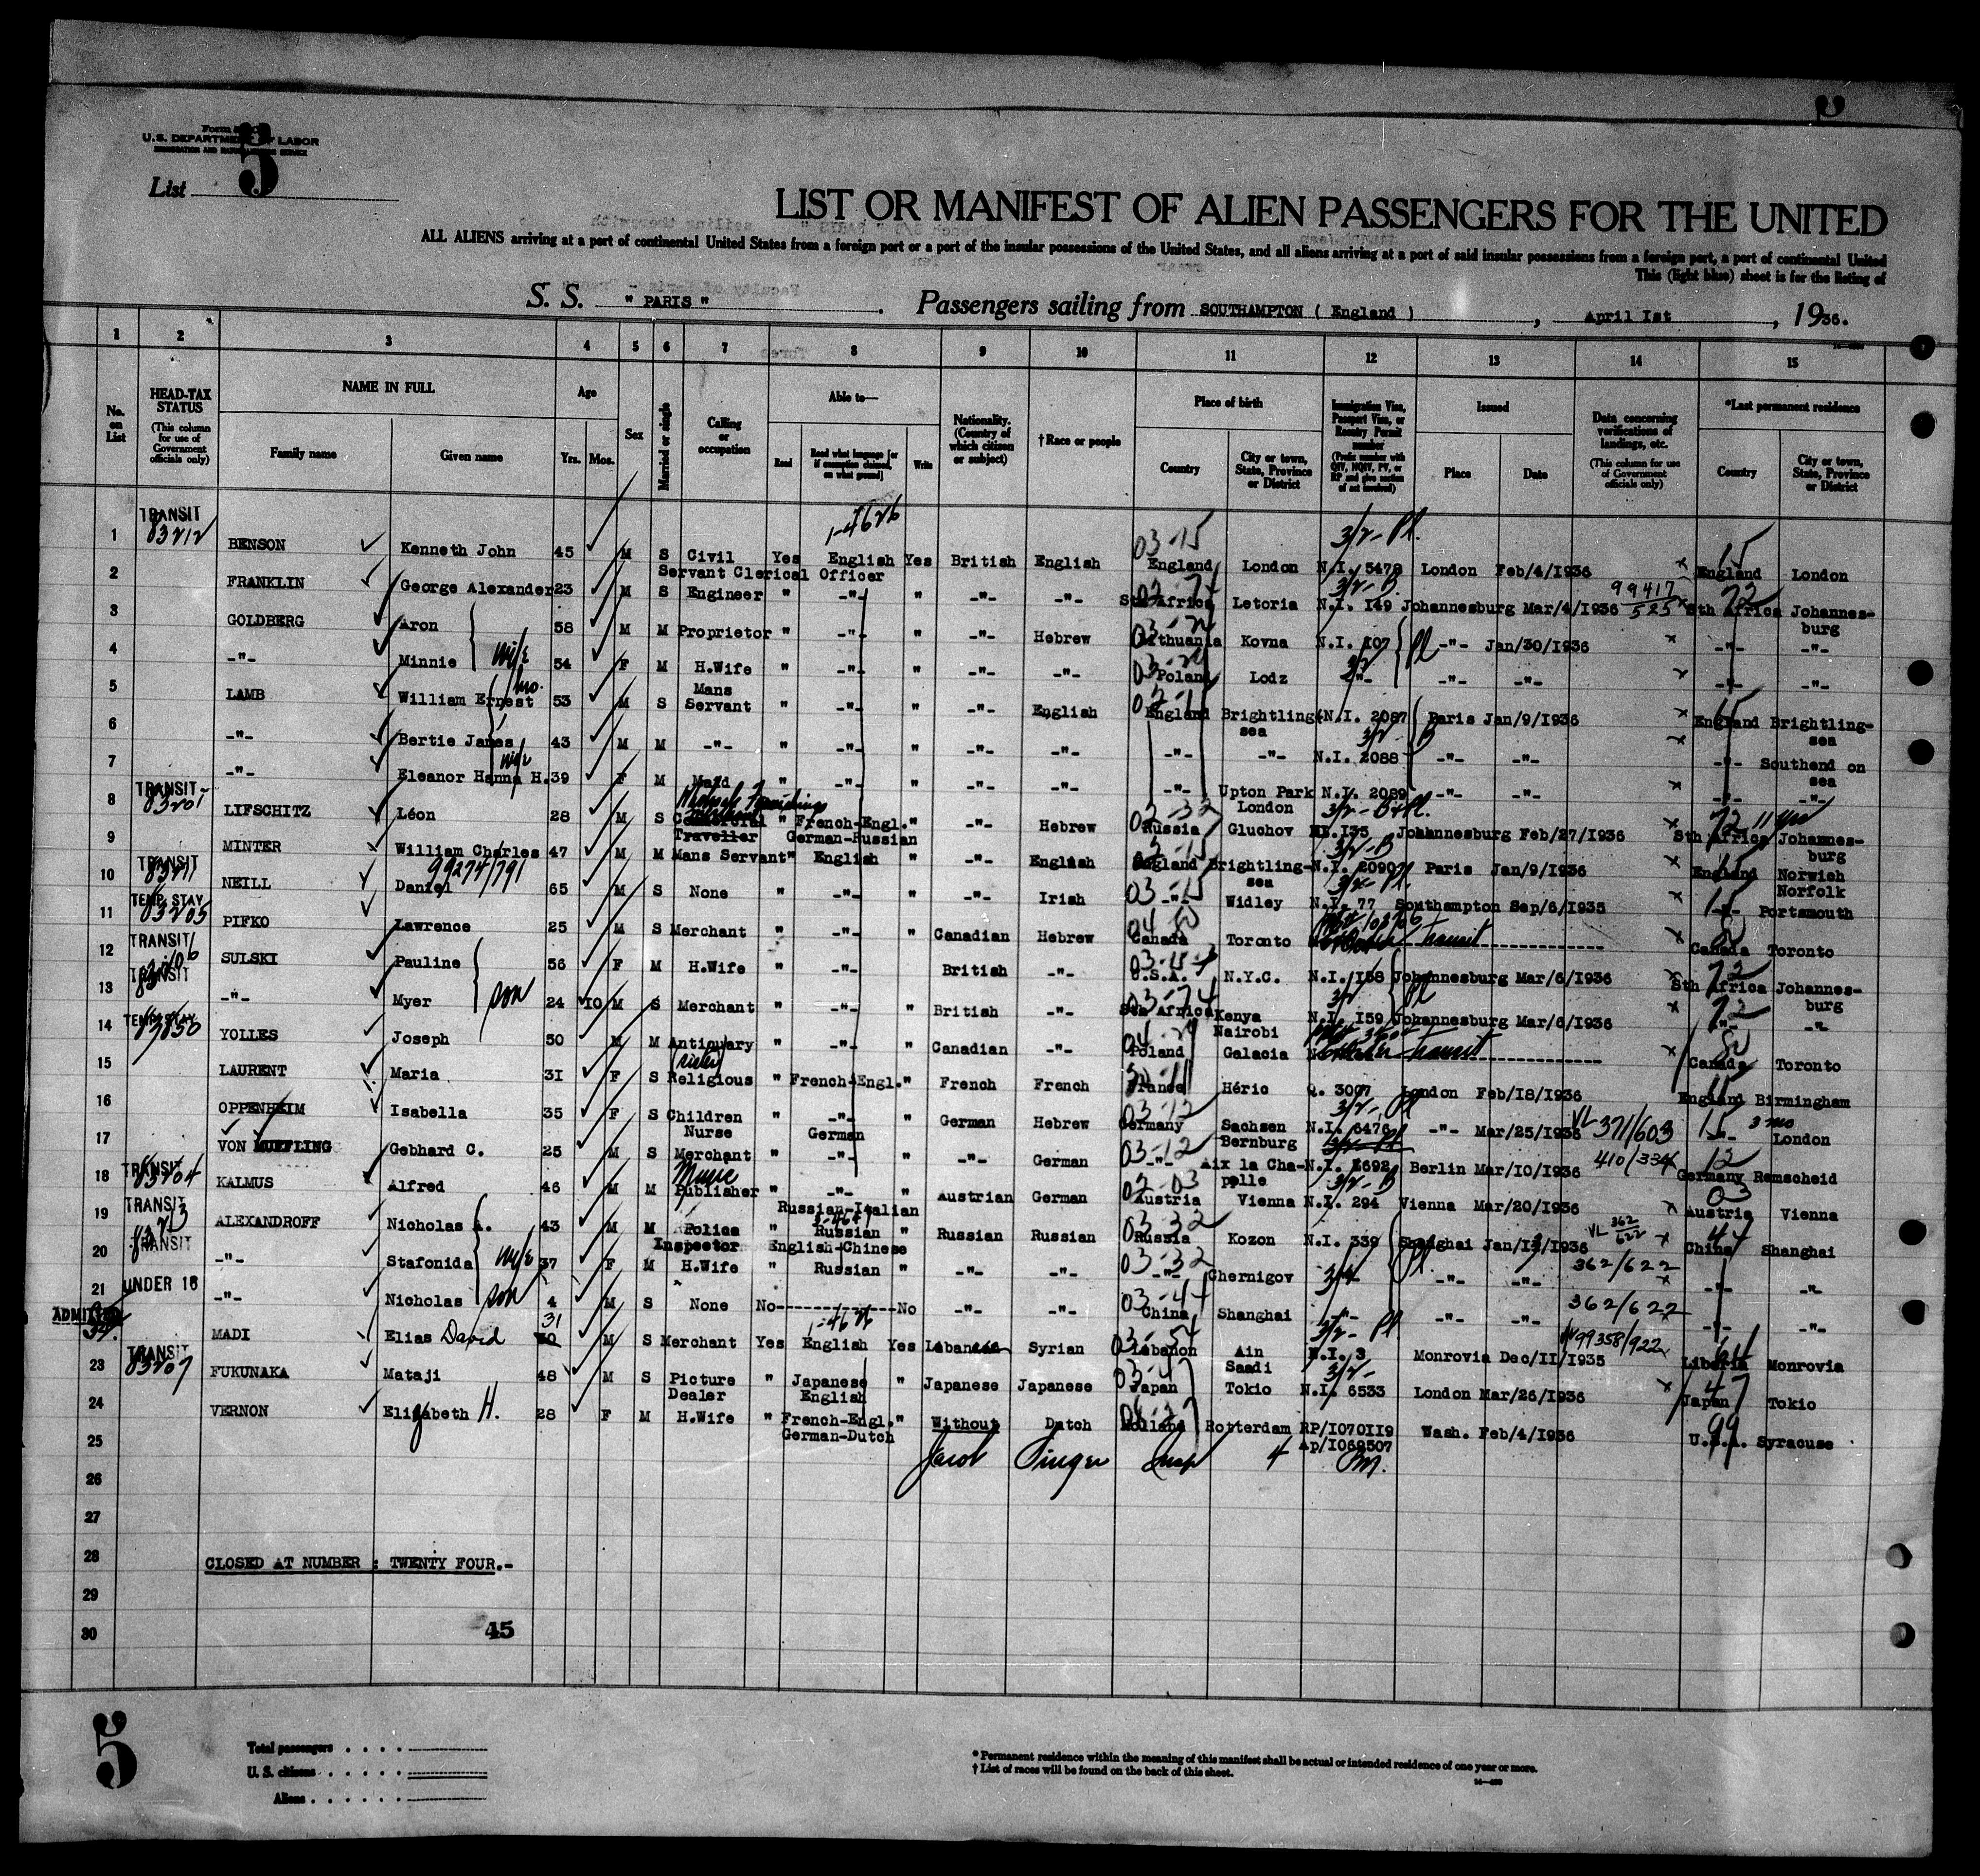 5
Form
U.S. DEPARTMENT OF LABOR
IMMIGRATION AND NATURALIZATION SERVICE
List 5
LIST OR MANIFEST OF ALIEN PASSENGERS FOR THE UNITED
ALL ALIENS arriving at a port of continental United States from a foreign port or a port of the insular possessions of the United States, and all aliens arriving at a port of said insular possessions from a foreign port, a port of continental United
This (light blue) sheet is for the listing of
S. S. " PARIS ". Passengers sailing from SOUTHAMPTON ( England ), April Ist, 1936.
1 2 3 4 5 6 7 8 9 10 11 12 13 14 15
No. on List
HEAD-TAX STATUS (This column for use of Government officials only)
NAME IN FULL Family name Given name
Age Yrs. Mos.
Sex
Married or single
Calling or occupation
Able to— Read Read what language [or if exemption claimed, on what ground] Write
Nationality. (Country of which citizen or subject)
†Race or people
Place of birth Country City or town, State, Province or District
Immigration Visa, Passport Visa, or Reentry Permit number (Prefix number with QIV, NQIV, PV, or RP and give section of act involved)
Issued Place Date
Data concerning verifications of landings, etc. (This column for use of Government officials only)
*Last permanent residence Country City or town, State, Province or District
1 TRANSIT 83212 BENSON Kenneth John 45 M S Civil Yes English Yes British English England London N.I. 5478 London Feb/4/I936 England London
Servant Clerical Officer
2 FRANKLIN George Alexander 23 M S Engineer " -"- " -"- -"- Sth Africa Letoria N.I. I49 Johannesburg Mar/4/I936 99417/525 Sth Africa Johannesburg
3 GOLDBERG Aron 58 M M Proprietor " -"- " -"- Hebrew Lithuania Kovna N.I. I07 -"- Jan/30/I936 -"- -"-
4 -"- Minnie wife 54 F M H.Wife " -"- " -"- -"- Poland Lodz -"- -"- -"- -"- -"-
5 LAMB William Ernest 53 M S Mans Servant " -"- " -"- English England Brightlingsea N.I. 2087 Paris Jan/9/I936 England Brightlingsea
6 -"- Bertie James 43 M M -"- " -"- " -"- -"- -"- -"- N.I. 2088 -"- -"- -"- Southend on sea
7 -"- Eleanor Hanna H. 39 F M Maid " -"- " -"- -"- -"- Upton Park London N.I. 2089 -"- -"- -"- -"-
8 TRANSIT LIFSCHITZ Léon 28 M S Commercial Traveller " French-Engl. German-Russian " -"- Hebrew Russia Gluchov I35 Johannesburg Feb/27/I936 Sth Africa Johannesburg
9 MINTER William Charles 47 M M Mans Servant " English " -"- English England Brightlingsea N.I. 2090 Paris Jan/9/I936 England Norwich Norfolk
10 TRANSIT 83211 NEILL Daniel 99274/791 65 M S None " -"- " -"- Irish -"- Widley N.I. 77 Southampton Sep/6/I935 -"- Portsmouth
11 TEMP. STAY 83205 PIFKO Lawrence 25 M S Merchant " -"- " Canadian Hebrew Canada Toronto transit Canada Toronto
12 TRANSIT SULSKI Pauline 56 F M H.Wife " -"- British -"- U.S.A. N.Y.C. N.I. I58 Johannesburg Mar/6/I936 Sth Africa Johannesburg
13 TRANSIT -"- Myer son 24 IO M S Merchant " -"- " British -"- Sth Africa Kenya Nairobi N.I. I59 Johannesburg Mar/6/I936 -"- -"-
14 TEMP. STAY YOLLES Joseph 50 M M Antiquary " -"- " Canadian -"- Poland Galacia transit Canada Toronto
15 LAURENT Maria 3I F S Religious " French-Engl. " French French France Héric Q. 3007 London Feb/I8/I936 England Birmingham
16 OPPENHEIM Isabella 35 F S Children Nurse " -"- German " German Hebrew Germany Sachsen Bernburg N.I. 6476 -"- Mar/25/I936 VL 371/603 -"- London
17 VON MUEFLING Gebhard C. 25 M S Merchant " -"- " -"- German -"- Aix la Chapelle N.I. I692 Berlin Mar/I0/I936 410/334 Germany Remscheid
18 TRANSIT 83204 KALMUS Alfred 46 M M Music Publisher " -"- Russian-Italian " Austrian German Austria Vienna N.I. 294 Vienna Mar/20/I936 Austria Vienna
19 TRANSIT ALEXANDROFF Nicholas A. 43 M M Police Inspector " Russian English-Chinese " Russian Russian Russia Kozon N.I. 339 Shanghai VL 362/622 China Shanghai
20 TRANSIT -"- Stafonida wife 37 F M H.Wife " Russian " -"- -"- -"- Chernigov -"- -"- 362/622 -"- -"-
21 UNDER 16 -"- Nicholas son 4 M S None No No -"- -"- China Shanghai -"- -"- -"- 362/622 -"- -"-
ADMITTED MADI Elias David 31 M S Merchant Yes English Yes Syrian Lebanon Ain Saadi N.I. 3 Monrovia Dec/II/I935 99358/922 Liberia Monrovia
23 TRANSIT 83207 FUKUNAKA Mataji 48 M S Picture Dealer " Japanese English " Japanese Japanese Japan Tokio N.I. 6533 London Mar/26/I936 Japan Tokio
24 VERNON Elizabeth H. 28 F M H.Wife " French-Engl. German-Dutch " Without Dutch Holland Rotterdam RP/I070II9 Ap/I069507 Wash. Feb/4/I936 U.S.A. Syracuse
25 Jacob Singer Insp
26
27
28 CLOSED AT NUMBER : TWENTY FOUR.-
29
30 45
5
Total passengers
U. S. citizens
Aliens
* Permanent residence within the meaning of this manifest shall be actual or intended residence of one year or more.
† List of races will be found on the back of this sheet.